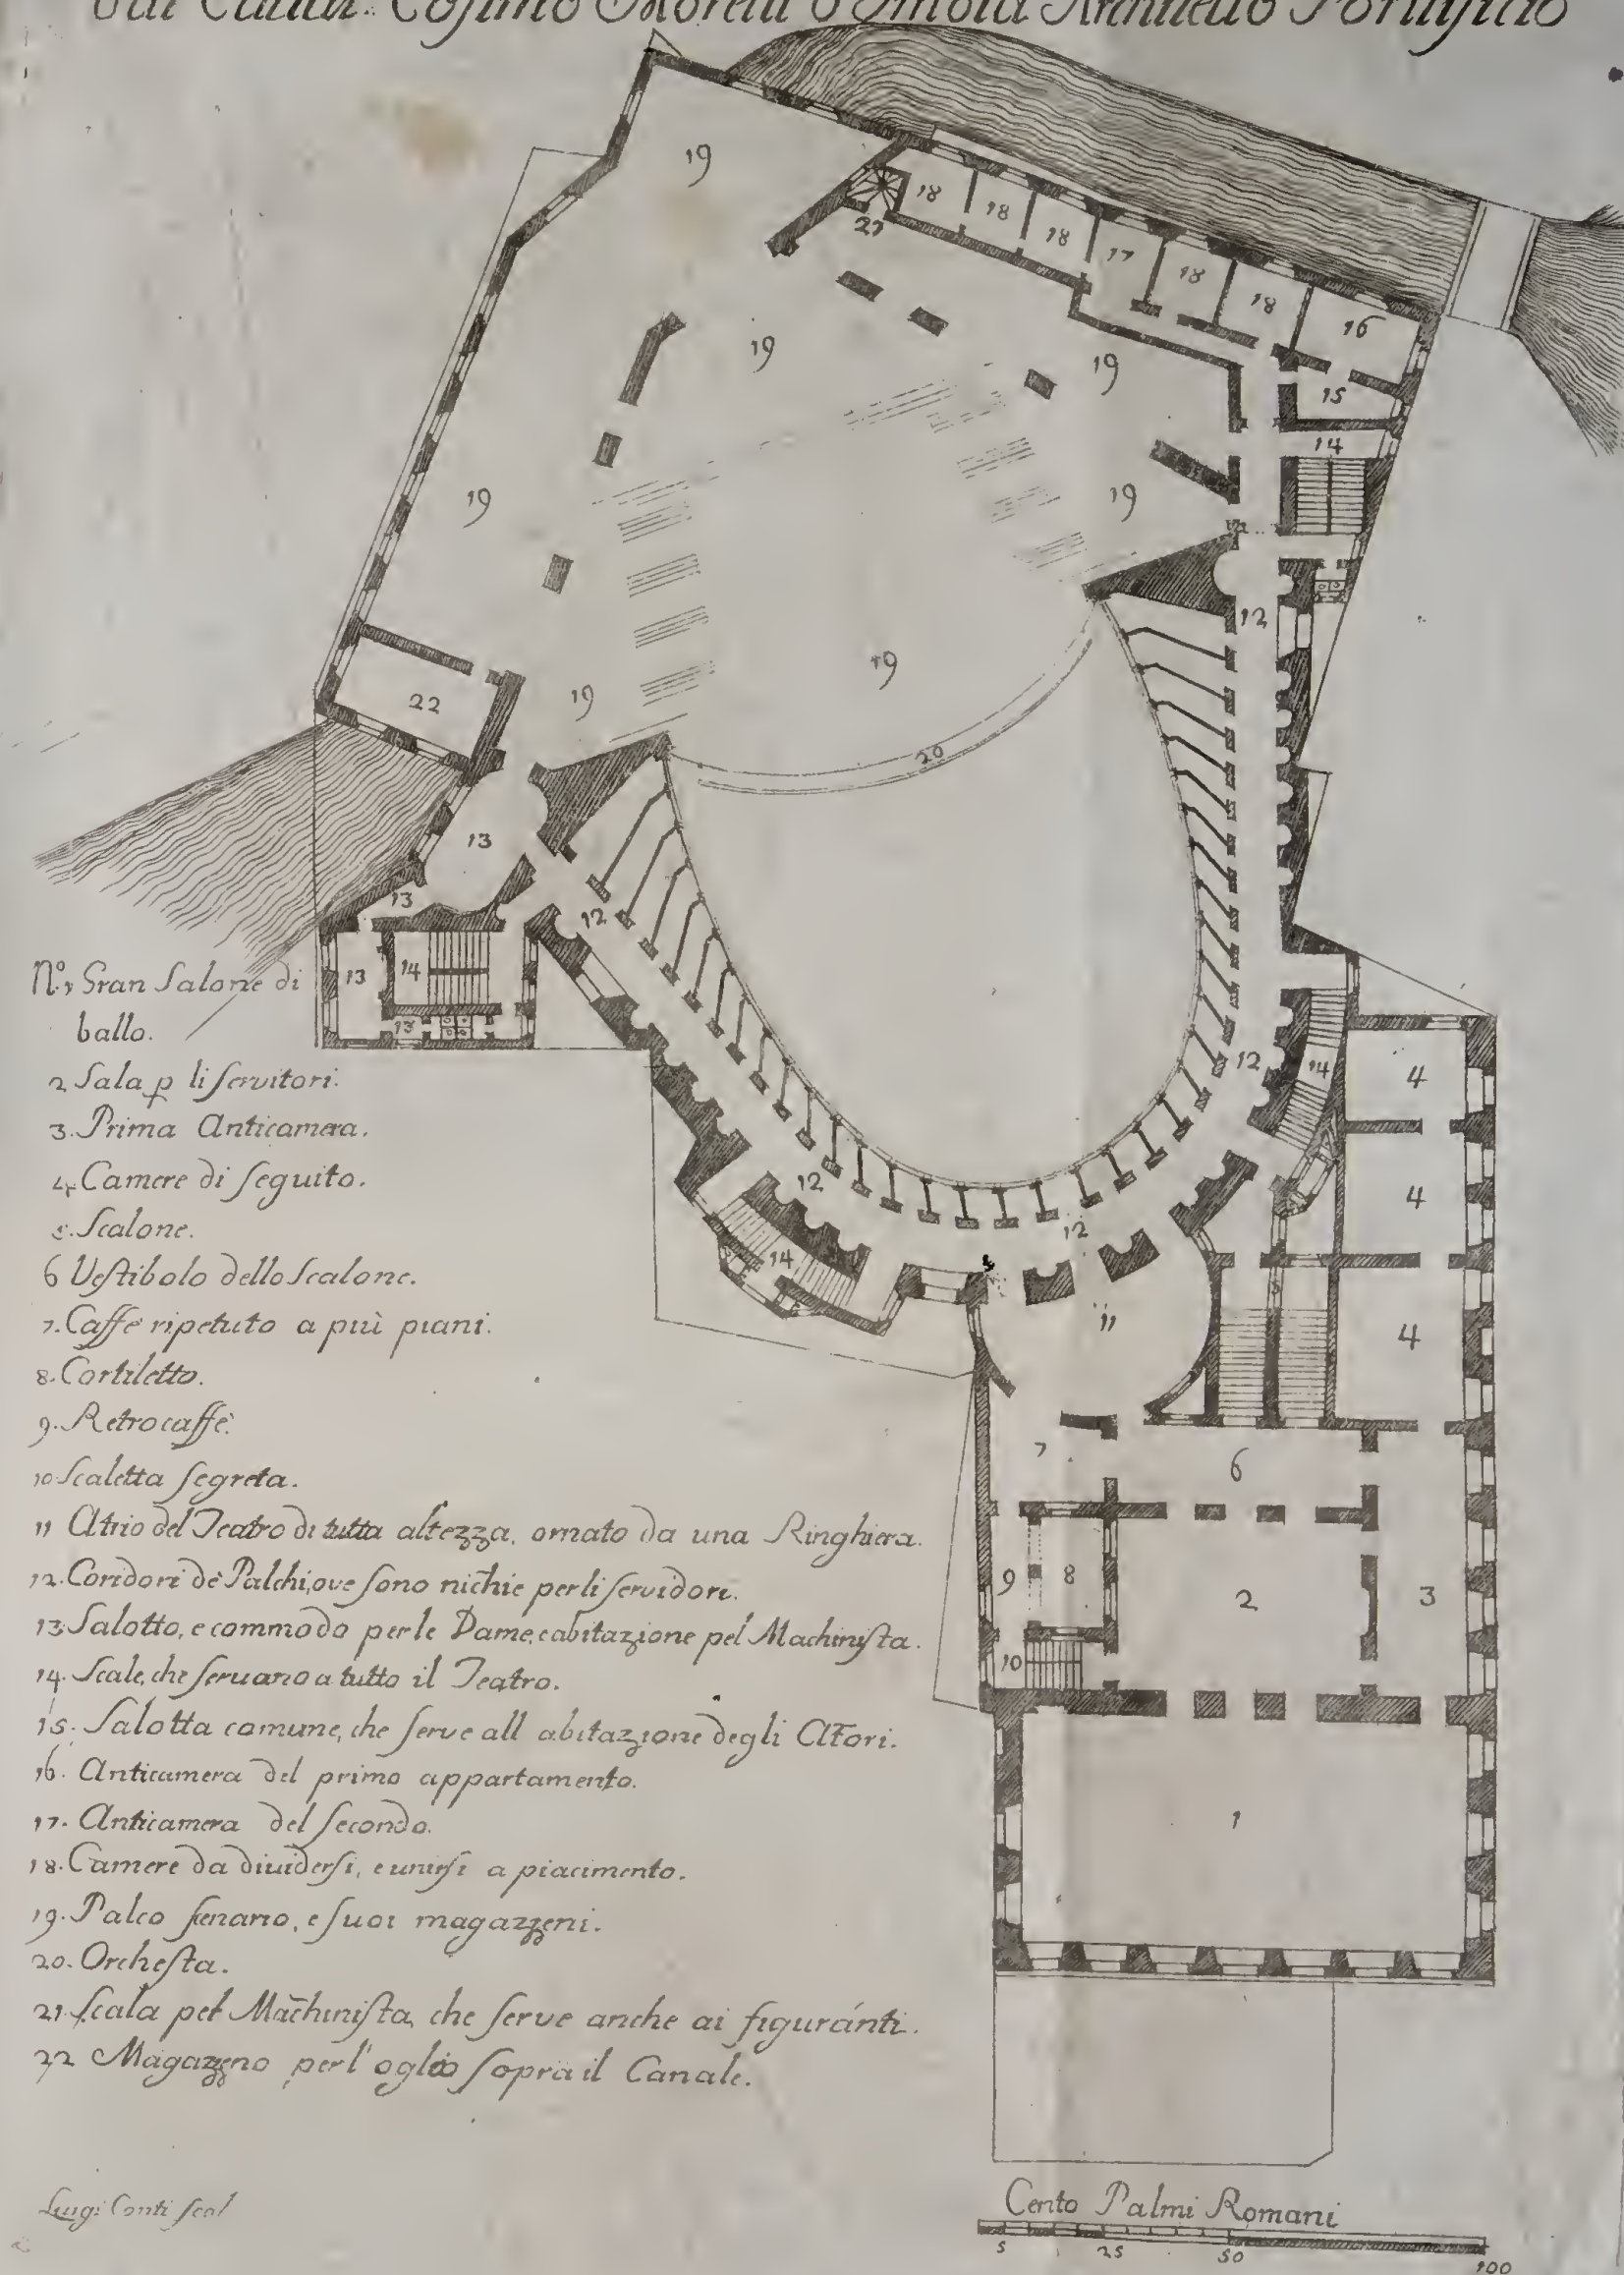 dal Cavalr. Cosimo Morelli d'Imola Architetto Pontificio
19
18
18
18
17
18
18
16
21
15
14
19
19
19
19
19
12
22
19
20
13
13
12
13
14
13
12
14
4
4
4
12
12
14
11
5
7
6
9
8
2
3
10
1
No. 1 Gran Salone di
ballo.
2 Sala p li servitori.
3. Prima Anticamera.
4. Camere di seguito.
5. Scalone.
6 Vestibolo dello Scalone.
7. Caffè ripetuto a più piani.
8. Cortiletto.
9. Retrocaffè.
10 Scaletta segreta.
11 Atrio del Teatro di tutta altezza, ornato da una Ringhiera.
12. Coridori de' Palchi, ove sono nichie per li servidori.
13 Salotto, e commodo per le Dame, e abitazione pel Machinista.
14. Scale, che servano a tutto il Teatro.
15. Salotta comune, che serve all abitazione degli Attori.
16. Anticamera del primo appartamento.
17. Anticamera del secondo.
18. Camere da dividersi, e unirsi a piacimento.
19. Palco scenario, e suoi magazzeni.
20. Orchesta.
21. Scala pel Machinista, che serve anche ai figuranti.
22 Magazzeno per l'oglio sopra il Canale.
Luigi Conti scol
Cento Palmi Romani
5 25 50 100